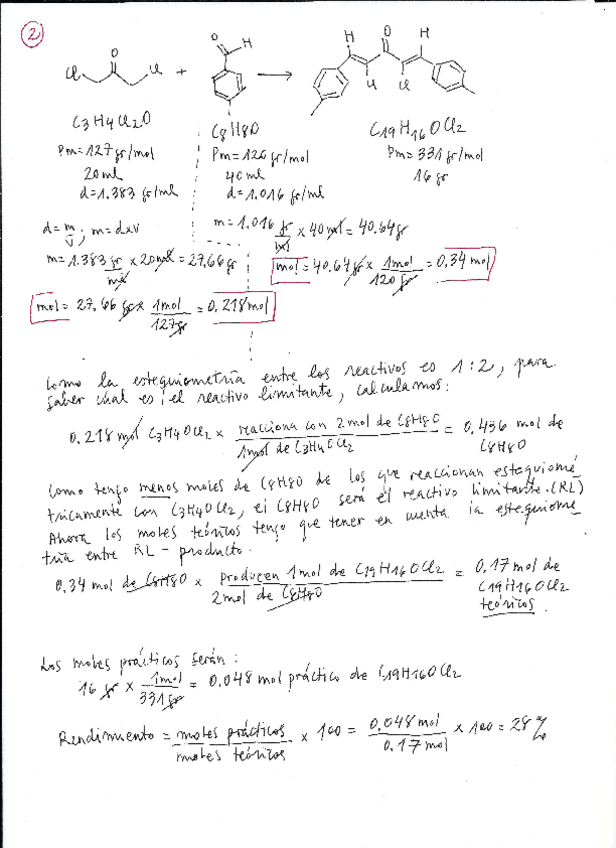 2
O
O
H
H
O
H
Cl
Cl
+
Cl
Cl
C3H4Cl2O
C8H8O
C19H16OCl2
Pm=127 gr/mol
Pm=120 gr/mol
Pm=331 gr/mol
20ml
40ml
16 gr
d=1.383 gr/ml
d=1.016 gr/ml
d=m/v ; m=dxv
m=1.016 gr/ml x 40ml = 40.64gr
m=1.383 gr/ml x 20ml = 27,66 gr
mol=40.64gr x 1mol/120gr = 0.34 mol
mol= 27,66 gr x 1mol/127gr = 0.218mol
Como la estequiometría entre los reactivos es 1:2, para
saber cual es el reactivo limitante, calculamos:
0.218 mol C3H4OCl2 x reacciona con 2mol de C8H8O/1mol de C3H4OCl2 = 0.436 mol de
C8H8O
Como tengo menos moles de C8H8O de los que reaccionan estequiomé
tricamente con C3H4OCl2, el C8H8O será el reactivo limitante.(RL)
Ahora los moles teóricos tengo que tener en cuenta la estequiome
tría entre RL - producto.
0.34 mol de C8H8O x producen 1mol de C19H16OCl2/2mol de C8H8O = 0.17 mol de
C19H16OCl2
teóricos.
Los moles prácticos serán:
16 gr x 1mol/331gr = 0.048 mol práctico de C19H16OCl2
Rendimiento = moles prácticos/moles teóricos x 100 = 0.048 mol/0.17 mol x 100 = 28%